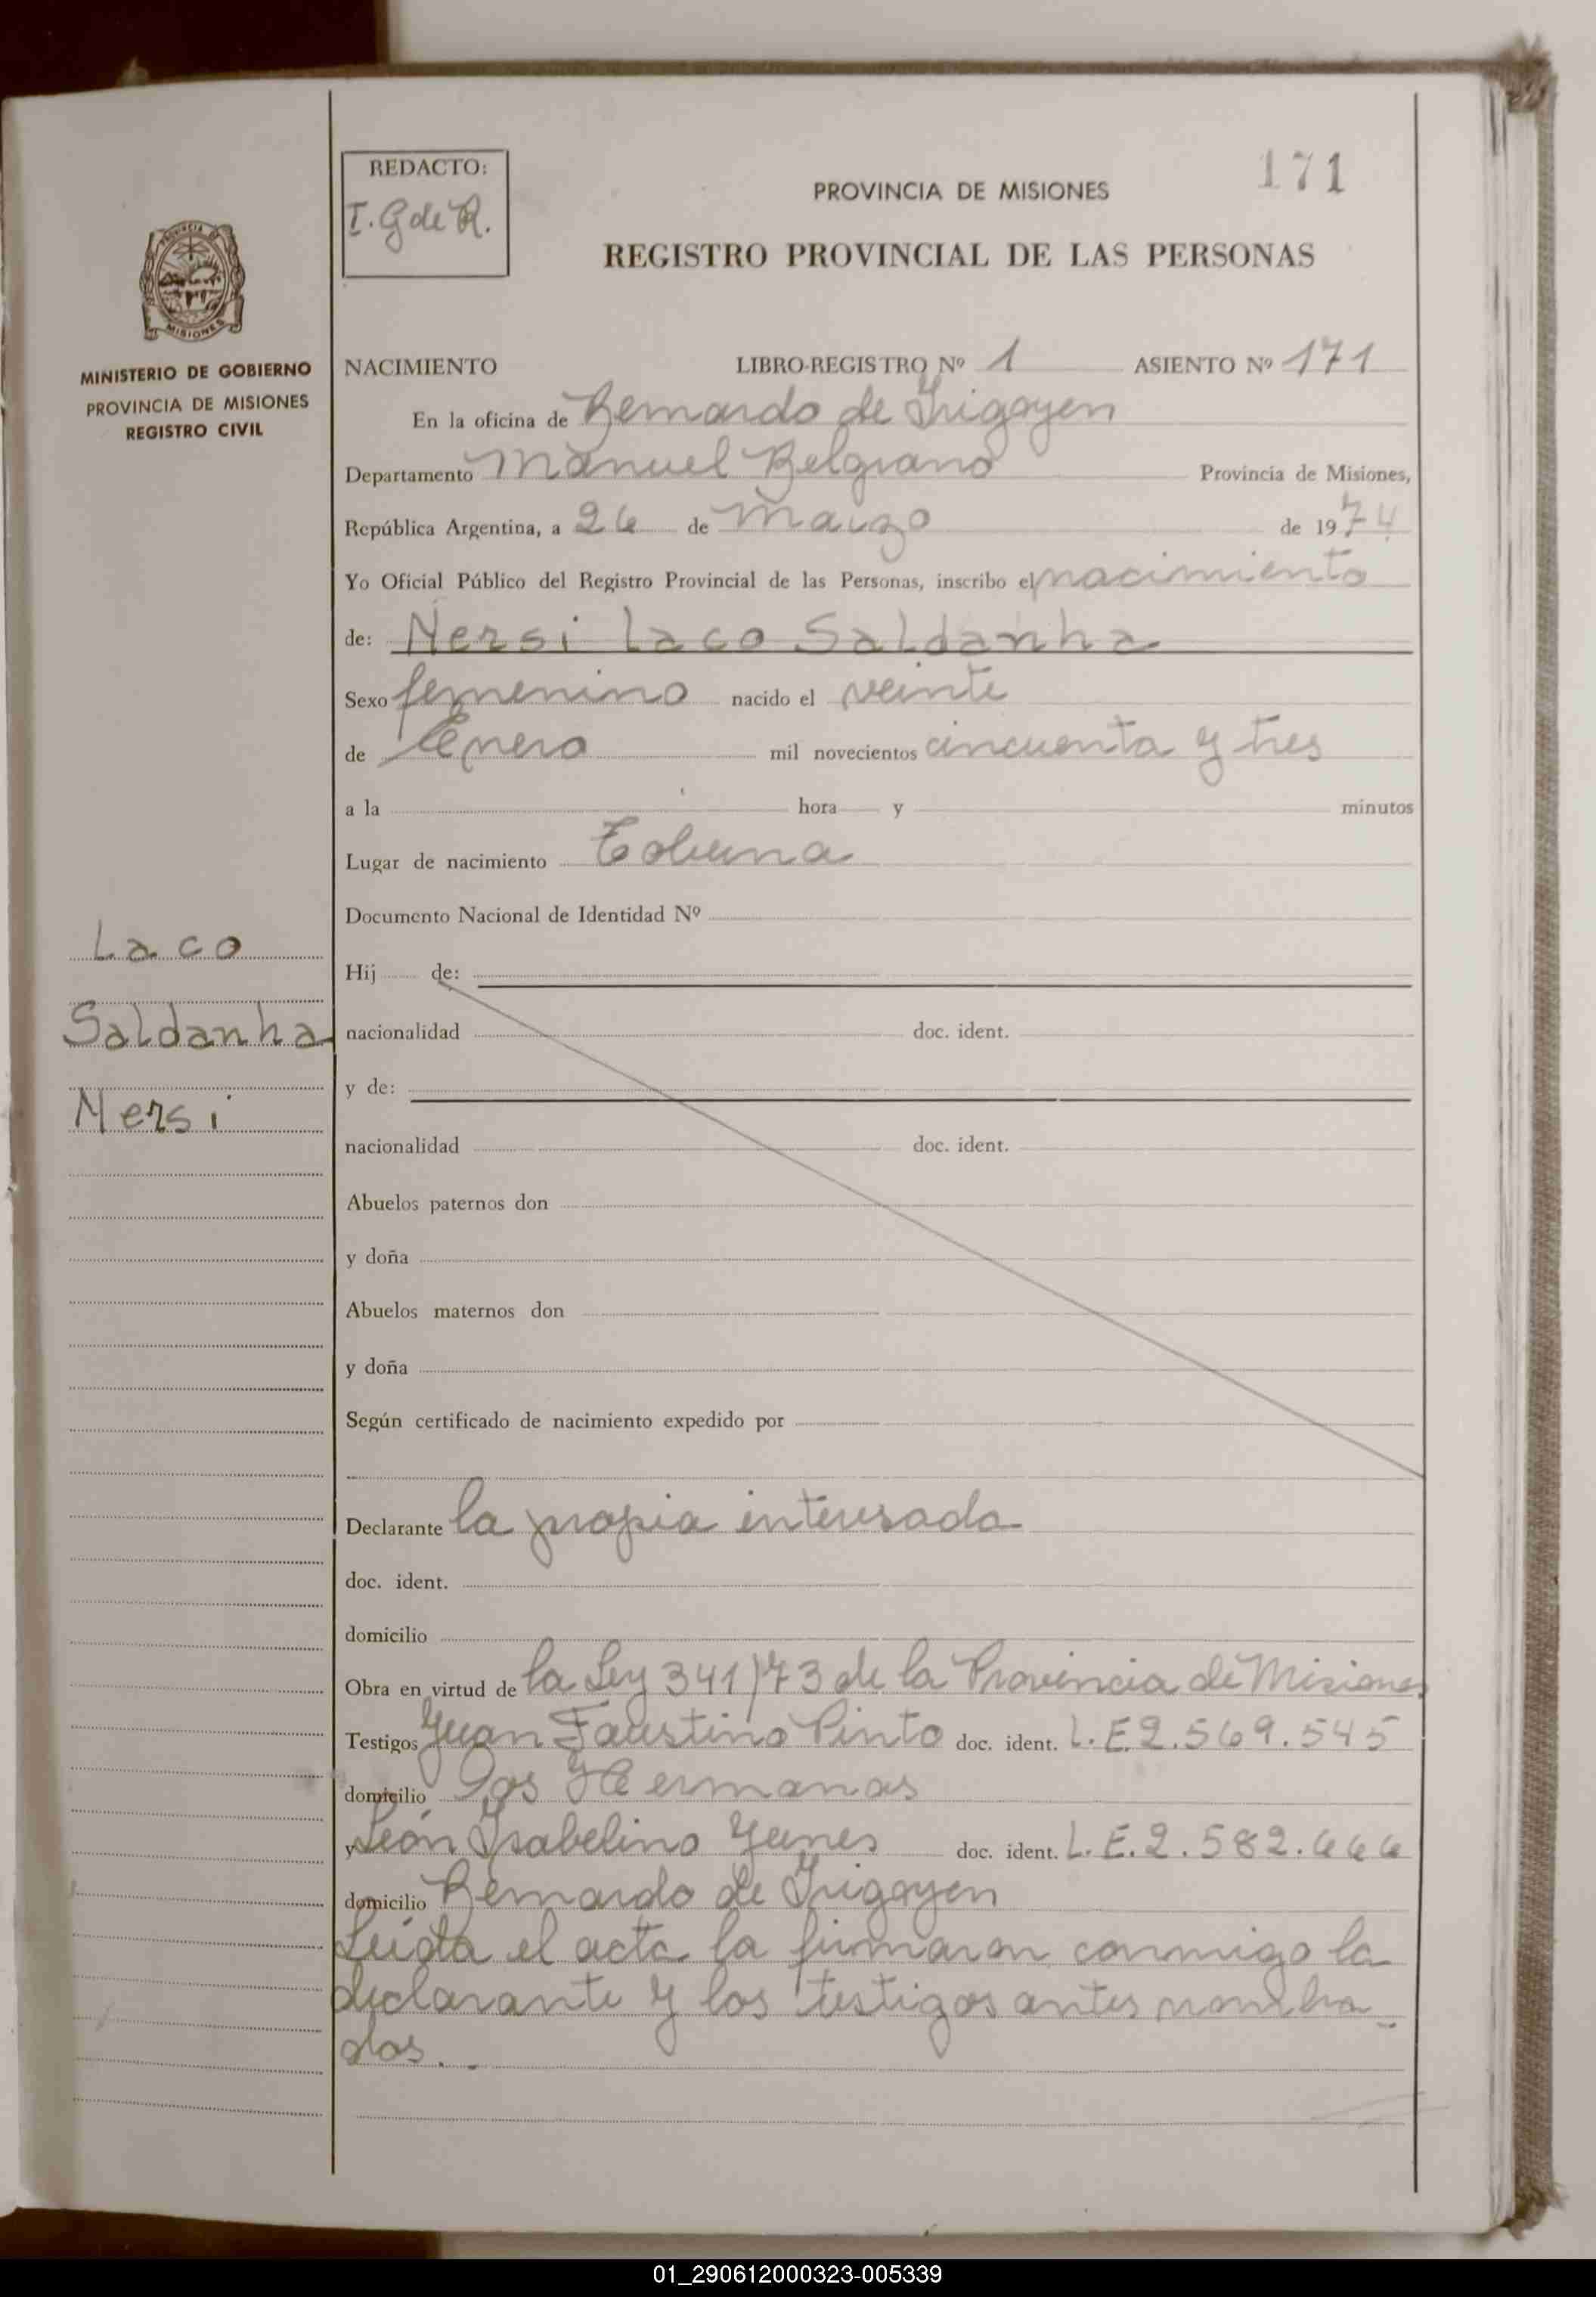 171
REDACTO:
I. G de R.
PROVINCIA DE MISIONES
REGISTRO PROVINCIAL DE LAS PERSONAS
PROVINCIA DE
MISIONES
MINISTERIO DE GOBIERNO
PROVINCIA DE MISIONES
REGISTRO CIVIL
NACIMIENTO LIBRO-REGISTRO Nº 1 ASIENTO Nº 171
En la oficina de Bernardo de Irigoyen
Departamento Manuel Belgrano Provincia de Misiones,
República Argentina, a 26 de Marzo de 1974
Yo Oficial Público del Registro Provincial de las Personas, inscribo el nacimiento
de: Nersi Laco Saldanha
Sexo femenino nacido el veinte
de Enero mil novecientos cincuenta y tres
a la hora y minutos
Lugar de nacimiento Tobuna
Documento Nacional de Identidad Nº
Laco
Saldanha
Nersi
Hij de:
nacionalidad doc. ident.
y de:
nacionalidad doc. ident.
Abuelos paternos don
y doña
Abuelos maternos don
y doña
Según certificado de nacimiento expedido por
Declarante la propia interesada
doc. ident.
domicilio
Obra en virtud de la Ley 341/73 de la Provincia de Misiones
Testigos Juan Faustino Pinto doc. ident. L.E.2.569.545
domicilio Dos Hermanas
y León Isabelino Yunes doc. ident. L.E.2.582.666
domicilio Bernardo de Irigoyen
Leida el acta la firmaron conmigo la
declarante y los testigos antes nombra-
dos.-
01_290612000323-005339